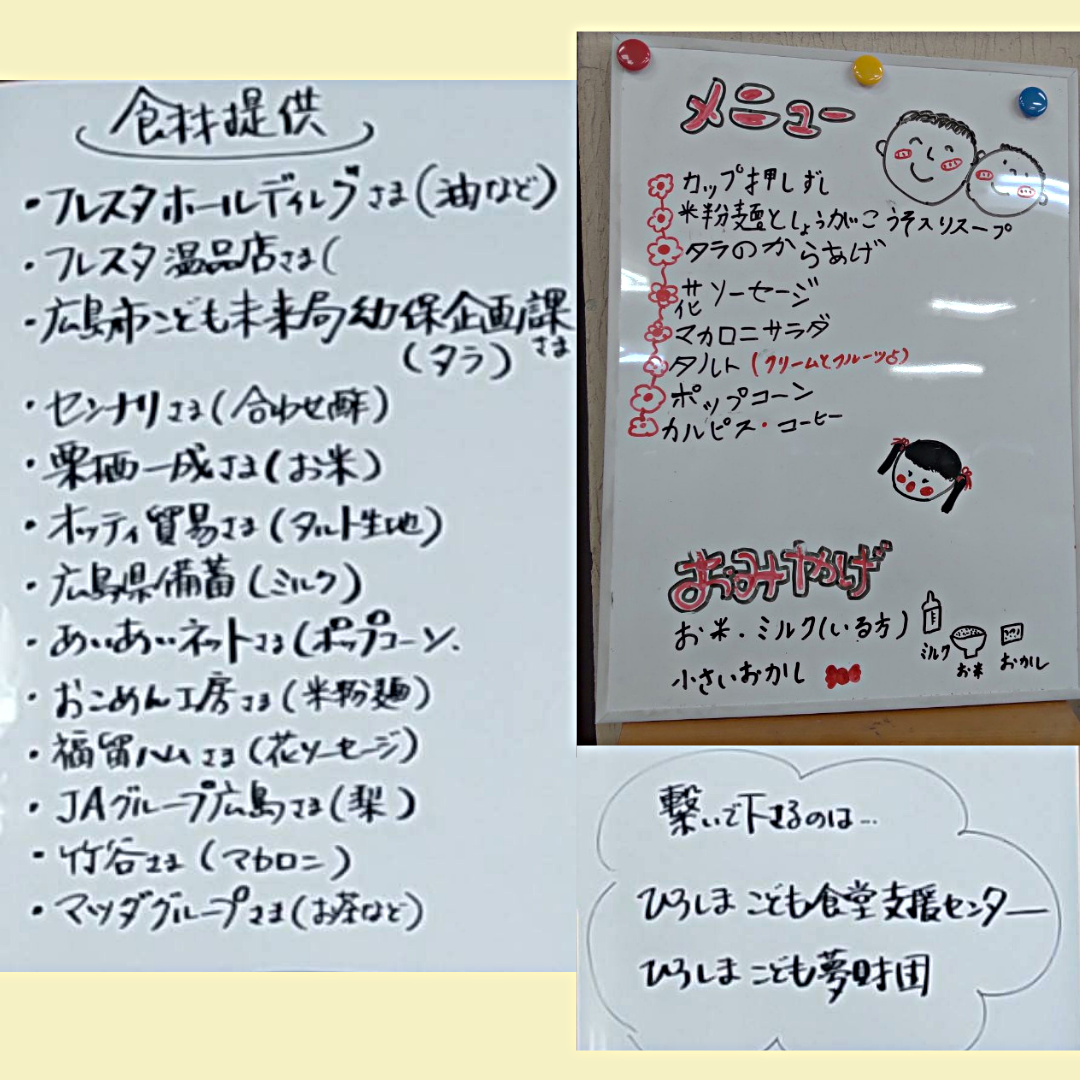 食材提供
・フレスタホールディングさま(油など)
・フレスタ温品店さま(
・広島市こども未来局幼保企画課さま
(タラ)
・センナリさま(合わせ酢)
・栗栖一成さま(お米)
・オッティ貿易さま(タルト生地)
・広島県備蓄(ミルク)
・あいあいネットさま(ポップコーン、
・おこめん工房さま(米粉麺)
・福留ハムさま(花ソーセージ)
・JAグループ広島さま(梨)
・竹谷さま(マカロニ)
・マツダグループさま(お茶など)
メニュー
カップ押しずし
米粉麺としょうがこうそ入りスープ
タラのからあげ
花ソーセージ
マカロニサラダ
タルト(クリームとフルーツ)
ポップコーン
カルピス・コーヒー
おみやげ
お米・ミルク(いる方)
小さいおかし
ミルク
お米
おかし
繋いで下さるのは…
ひろしまこども食堂支援センター
ひろしまこども夢財団